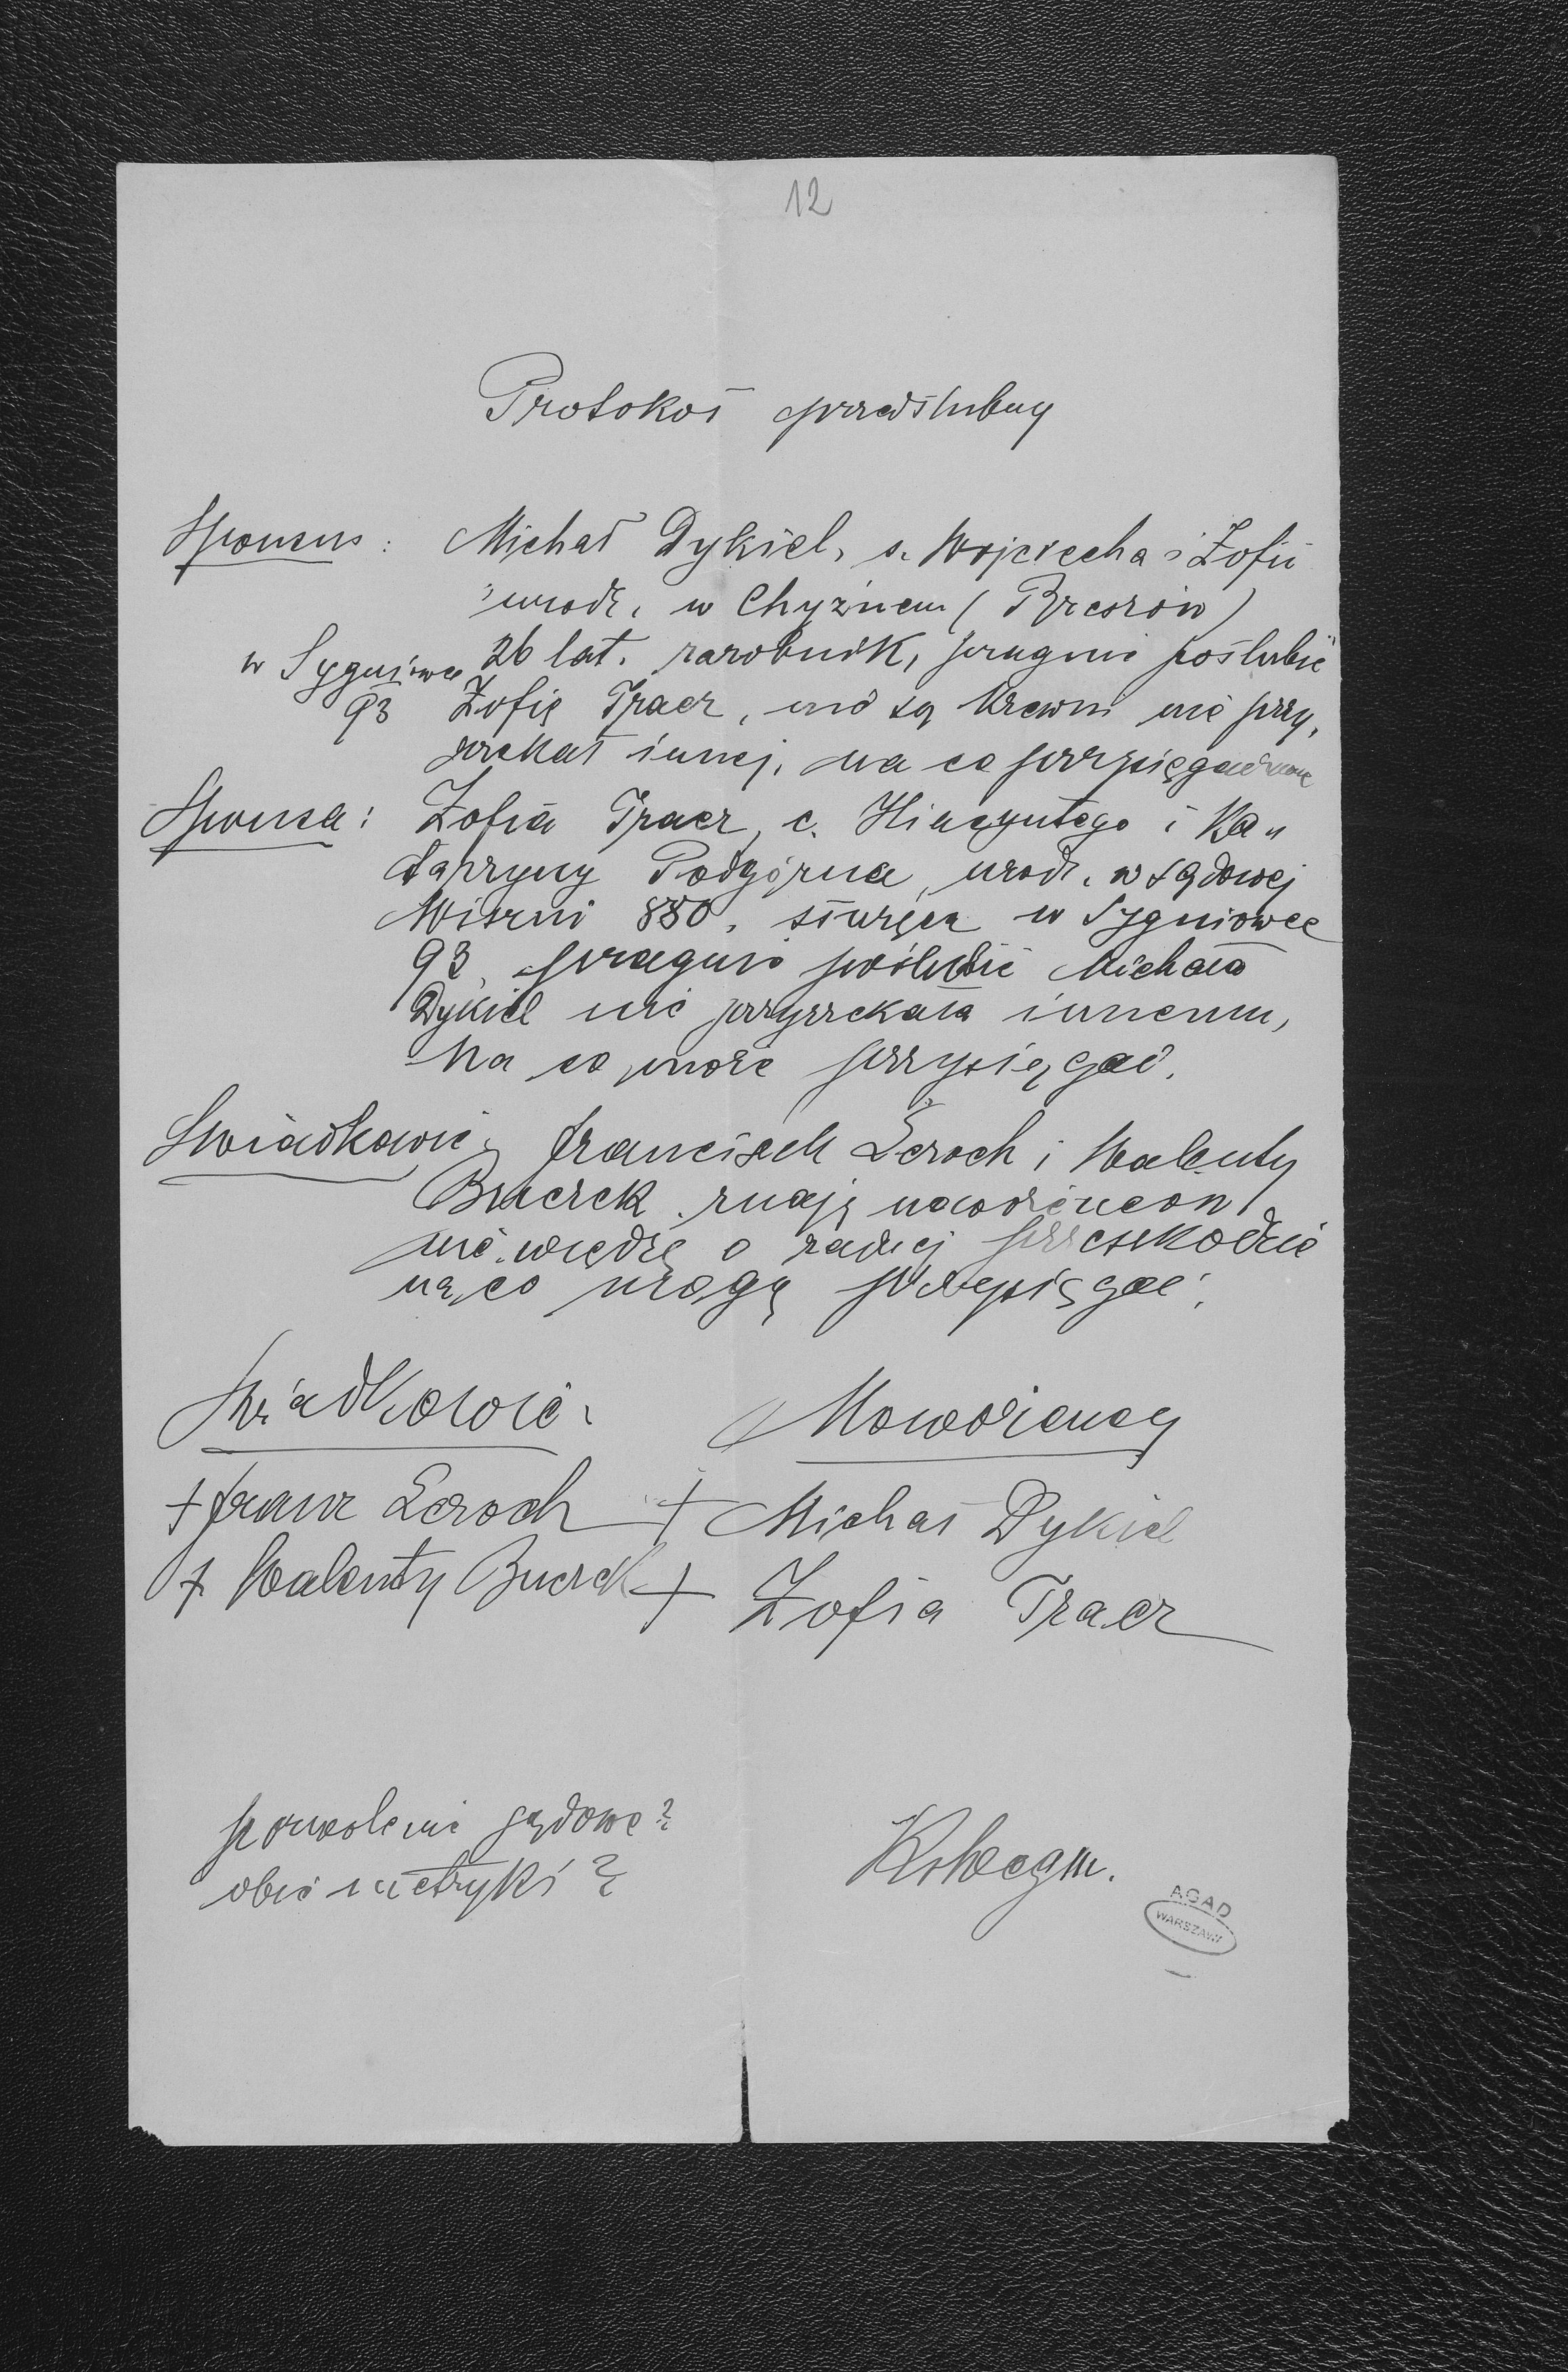 12
Protokoł przedślubny
Sponsus: Michał Dykiel, s. Wojciecha i Zofii
urodz. w Chyżnem (Brzozów)
w Sygniówce 26 lat. zarobnik, pragnie poślubić
93 Zofię Tracz, nie są krewni nie przy,
rzekał innej, na co
Sponsa: Zofia Tracz, c. Hiacyntego i Ka„
tarzyny Podgórna, urodz. w Sądowej
Wiszni 880. służąca w Sygniówce
93. pragnie poślubić Michała
Dykiel nie przyrzekała innemu,
na co może przysięgać.
Świadkowie: Franciszek Leroch i Walenty
znają nowożeńców
nie wiedzą o żadnej przeszkodzie
na co mogą przysięgać.
Świadkowie: Nowożeńcy
+ Franc Leroch + Michał Dykiel
+ Walenty + Zofia Tracz
pozwolenie sądowe?
obie metryki?
AGAD
WARSZAWA